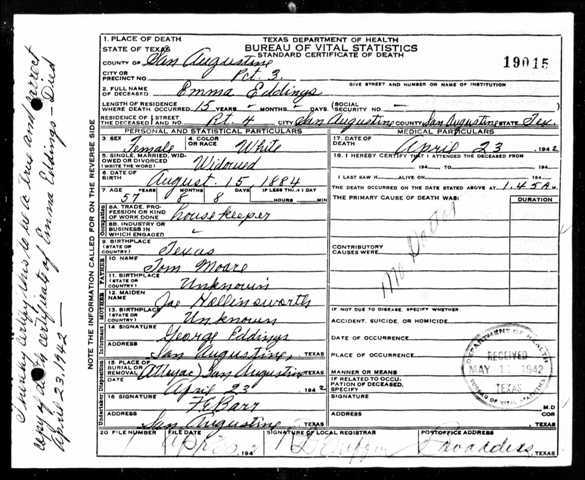 TEXAS DEPARTMENT OF HEALTH
BUREAU OF VITAL STATISTICS
STANDARD CERTIFICATE OF DEATH
19015
1. PLACE OF DEATH
STATE OF TEXAS
COUNTY OF San Augustine
CITY OR PRECINCT NO. Pct. 3.
GIVE STREET AND NUMBER OR NAME OF INSTITUTION
2. FULL NAME OF DECEASED Emma Eddings
LENGTH OF RESIDENCE WHERE DEATH OCCURRED 15 YEARS - MONTHS DAYS (SOCIAL SECURITY NO.
RESIDENCE OF THE DECEASED STREET AND NO. Rt. 4 CITY San Augustine COUNTY San Augustine STATE Tex.
PERSONAL AND STATISTICAL PARTICULARS
3. SEX Female
4. COLOR OR RACE White
5. SINGLE, MARRIED, WIDOWED OR DIVORCED (WRITE THE WORD) Widowed
6. DATE OF BIRTH August. 15, 1884
7. AGE YEARS MONTHS DAYS IF LESS THAN 1 DAY
57 8 8 HOURS MIN
8A. TRADE, PROFESSION OR KIND OF WORK DONE housekeeper
8B. INDUSTRY OR BUSINESS IN WHICH ENGAGED
9. BIRTHPLACE (STATE OR COUNTRY) Texas
10. NAME Tom Moore
11. BIRTHPLACE (STATE OR COUNTRY) Unknown
12. MAIDEN NAME Hollinsworth
13. BIRTHPLACE (STATE OR COUNTRY) Unknown
14. SIGNATURE George Eddings
ADDRESS San Augustine, TEXAS
15. PLACE OF BURIAL OR REMOVAL San Augustine TEXAS
DATE April 23 1942
16. SIGNATURE F.E. Barr
ADDRESS San Augustine TEXAS
MEDICAL PARTICULARS
17. DATE OF DEATH April 23, 1942
18. I HEREBY CERTIFY THAT I ATTENDED THE DECEASED FROM
194 TO 194
I LAST SAW H ALIVE ON 194
THE DEATH OCCURRED ON THE DATE STATED ABOVE AT 1:45 A. M.
THE PRIMARY CAUSE OF DEATH WAS: DURATION
No Doctor
CONTRIBUTORY CAUSES WERE:
IF NOT DUE TO DISEASE, SPECIFY WHETHER:
ACCIDENT, SUICIDE, OR HOMICIDE
DATE OF OCCURRENCE
PLACE OF OCCURRENCE
MANNER OR MEANS
IF RELATED TO OCCUPATION OF DECEASED, SPECIFY
SIGNATURE M.D
ADDRESS TEXAS
DEPARTMENT OF HEALTH
RECEIVED
1942
TEXAS
BUREAU OF VITAL STATISTICS
20. FILE NUMBER FILE DATE SIGNATURE OF LOCAL REGISTRAR POSTOFFICE ADDRESS
194 TEXAS
NOTE THE INFORMATION CALLED FOR ON THE REVERSE SIDE
I hereby certify this to be a true and correct
copy of death certificate of Emma Eddings - Died
April 23, 1942 -